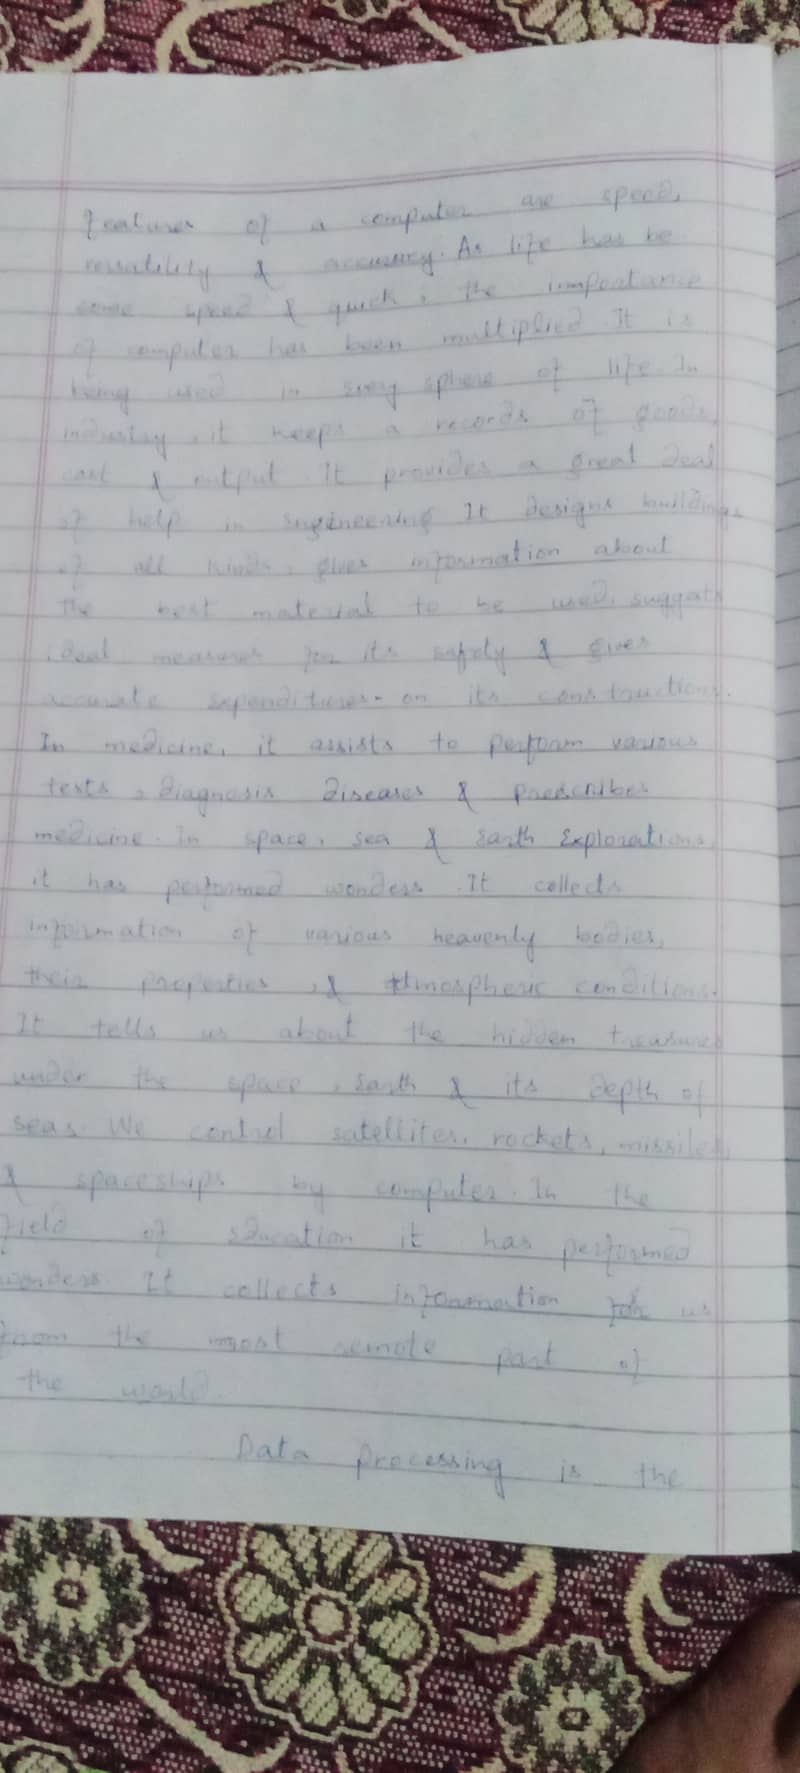 features of a computer are speed,
versatility & accuracy. As life has be
come speed & quick, the importance
of computer has been multiplied. It is
being used in every sphere of life. In
industry, it keeps a records of goods,
cost & output. It provides a great deal
of help in engineering. It designs buildings
of all kinds, gives information about
the best material to be used, suggats
ideal measures for its safely & gives
accurate expenditures on its constructions.
In medicine, it assists to perform various
tests, diagnosis diseases & prescribes
medicine. In space, sea & earth explorations,
it has performed wonders. It collects
information of various heavenly bodies,
their properties, & atmospheric conditions.
It tells us about the hidden treasures
under the space, earth & its depth of
seas. We control satellites, rockets, missiles,
& spaceships by computer. In the
field of education it has performed
wonders. It collects information for us
from the most remote part of
the world.
Data processing is the